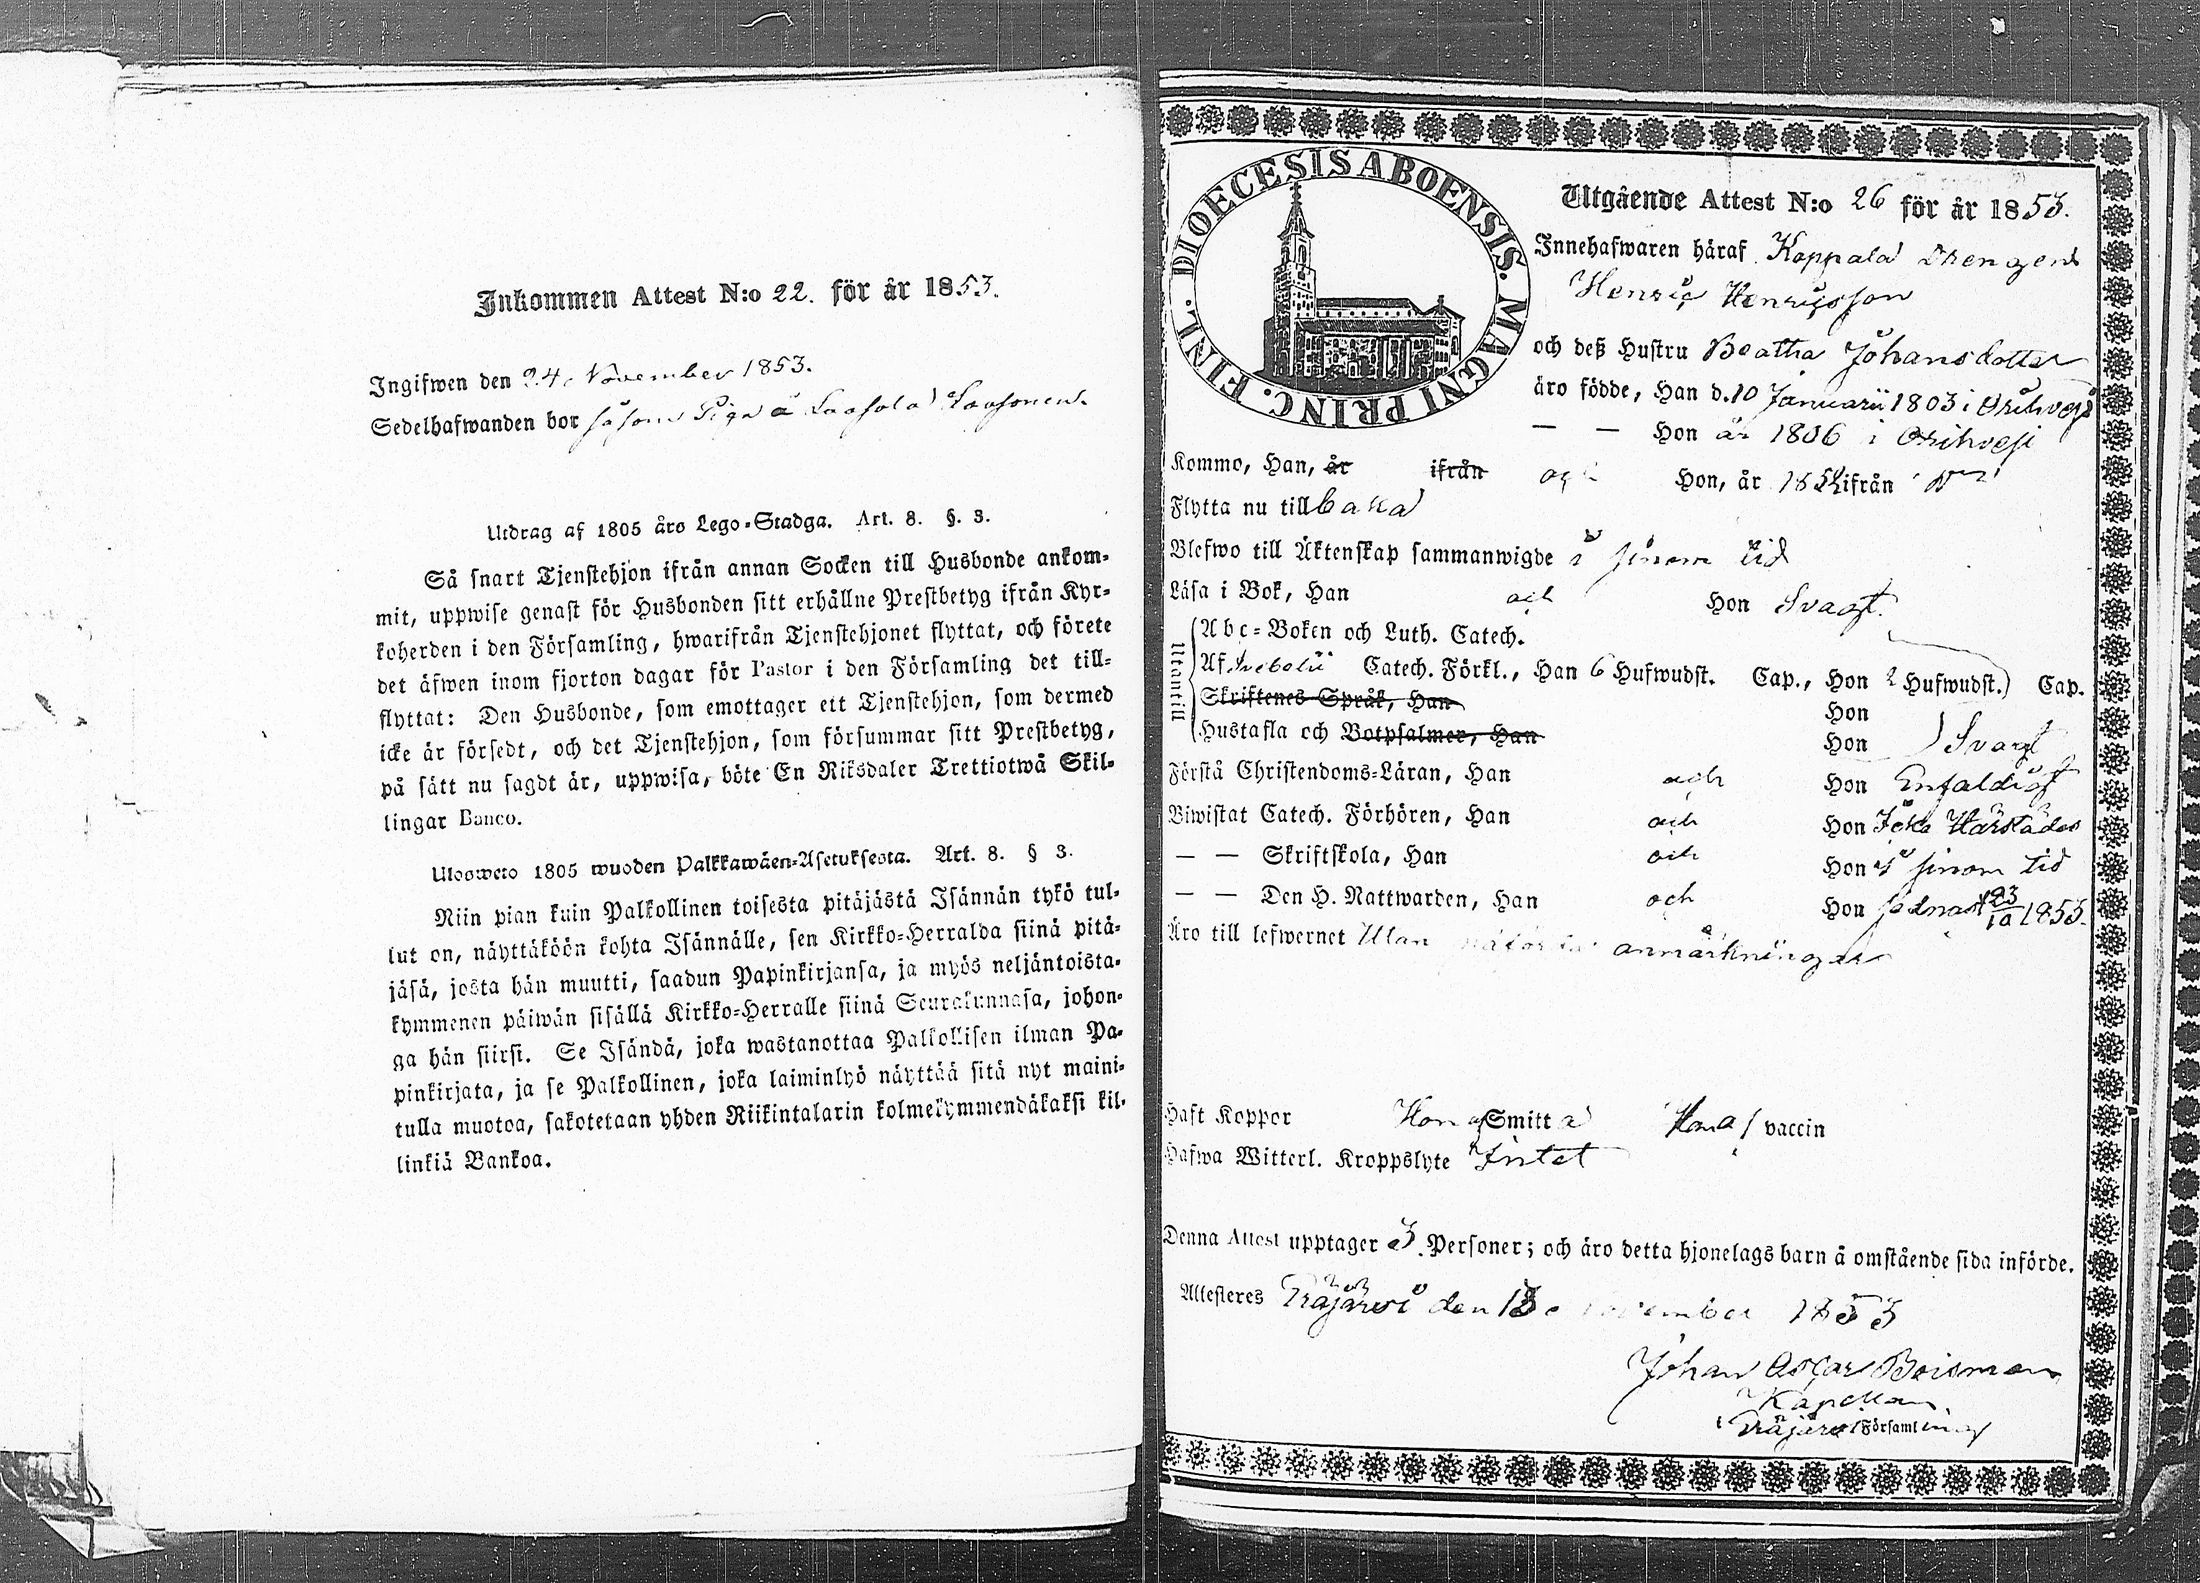 Inkommen Attest N:o 22. för år 1853.
Ingifwen den 24 November 1853.
Sedelhafwanden bor såsom Piga å
Utdrag af 1805 års Lego-Stadga. Art. 8. §. 3.
Så snart Tjenstehjon ifrån annan Socken till Husbonde ankom-
mit, uppwise genast för Husbonden sitt erhållne Prestbetyg ifrån Kyr-
koherden i den Församling, hwarifrån Tjenstehjonet flyttat, och förete
det äfwen inom fjorton dagar för Pastor i den Församling det till-
flyttat: Den Husbonde, som emottager ett Tjenstehjon, som dermed
icke är försedt, och det Tjenstehjon, som försummar sitt Prestbetyg,
på sätt nu sagdt är, uppwisa, böte En Riksdaler Trettiotwå Skil-
lingar Banco.
Ulosweto 1805 wuoden Palkkawäen-Asetuksesta. Art. 8. § 3.
Niin pian kuin Palkollinen toisesta pitäjästä Isännän tykö tul-
lut on, näyttäköön kohta Isännälle, sen Kirkko-Herralda siinä pitä-
jäsä, josta hän muutti, saadun Papinkirjansa, ja myös neljäntoista-
kymmenen päiwän sisällä Kirkko-Herralle siinä Seurakunnasa, johon-
ga hän siirsi. Se Isändä, joka wastanottaa Palkollisen ilman Pa-
pinkirjata, ja se Palkollinen, joka laiminlyö näyttää sitä nyt maini-
tulla muotoa, sakotetaan yhden Riikintalarin kolmekymmendäkaksi kil-
linkiä Bankoa.
DIOECESIS ABOENSIS. MAGNI PRINC. FINL.
Utgående Attest N:o 26 för år 1853.
Innehafwaren häraf Koppala Drengen
Henric Henricsson
och deß Hustru Beatha Johansdotter
äro födde, Han d. 10 Januarii 1803 i Orihvesi
— — Hon år 1806 i Orihvesi
Kommo, Han, år ifrån och Hon, år ifrån
Flytta nu tillbaka
Blefwo till Äktenskap sammanwigde i sinom tid
Läsa i Bok, Han och Hon Svagt.
Utantill
Abc-Boken och Luth. Catech.
Af Svebelii Catech. Förkl., Han 6 Hufwudst. Cap., Hon 2 Hufwudst. Cap.
Skriftenes Språk, Han Hon
Hustafla och Botpsalmer, Han Hon Svagt
Förstå Christendoms-Läran, Han och Hon Enfaldigt
Biwistat Catech. Förhören, Han och Hon Icke Härstädes
— — Skriftskola, Han och Hon i sinom tid
— — Den H. Nattwarden, Han och Hon sednast 23/10 1853.
Äro till lefwernet Utan anmärkningar
Haft Koppor Hona Smitta Hona vaccin
Hafwa Witterl. Kroppslyte Intet
Denna Attest upptager 3 Personer; och äro detta hjonelags barn å omstående sida införde.
Attesteras Träjärvi den November 1853
Johan Oscar Boisman
Kapellan
i Träjärvi Församling